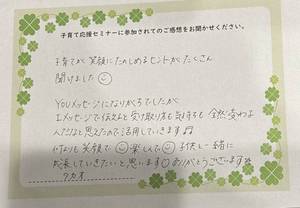 子育て応援セミナーに参加されてのご感想をお聞かせください。
子育てが笑顔にたのしめるヒントがたくさん
聞けました
Youメッセージになりがちでしたが
Iメッセージで伝えると受け取り方も気持ちも全然変わる
んだなと思えたので活用していきます♬
いつも笑顔で 楽しんで 子供と一緒に
成長していきたいと思います ありがとうございます